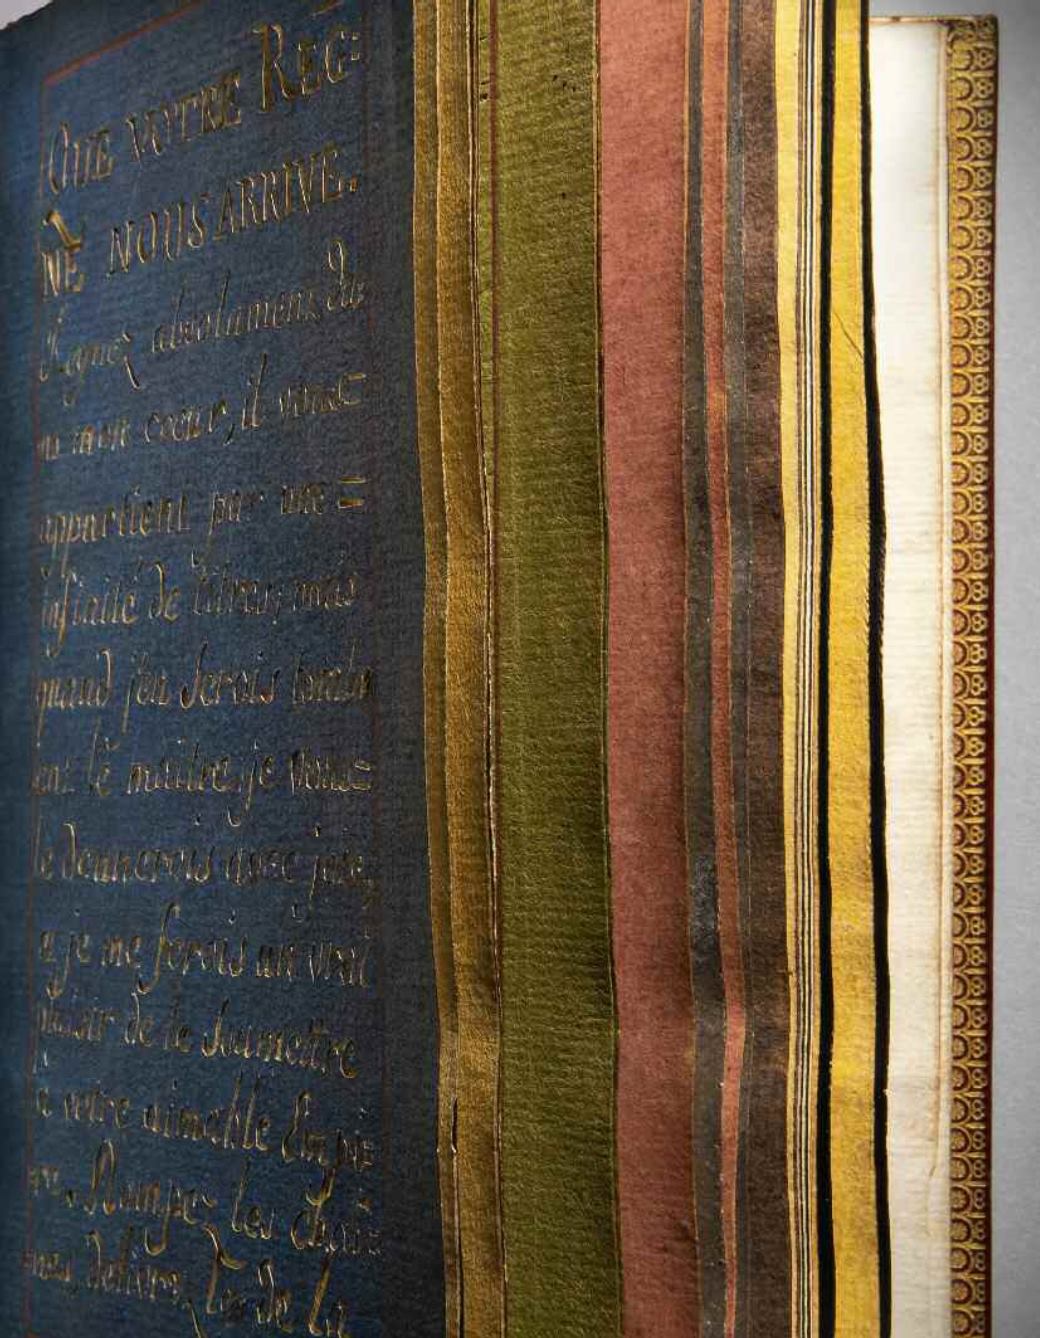 QUE VOTRE REG=
NE NOUS ARRIVE.
Regnez absolument da
ns mon cœur, il vous
appartient par une =
infinité de titres; mais
quand j'en serois
le maitre, je vous
le donnerois avec joie,
et je me ferois un vrai
plaisir de le soumettre
a votre aimable Empi=
re. Rompez les chai=
nes, delivrez le de la